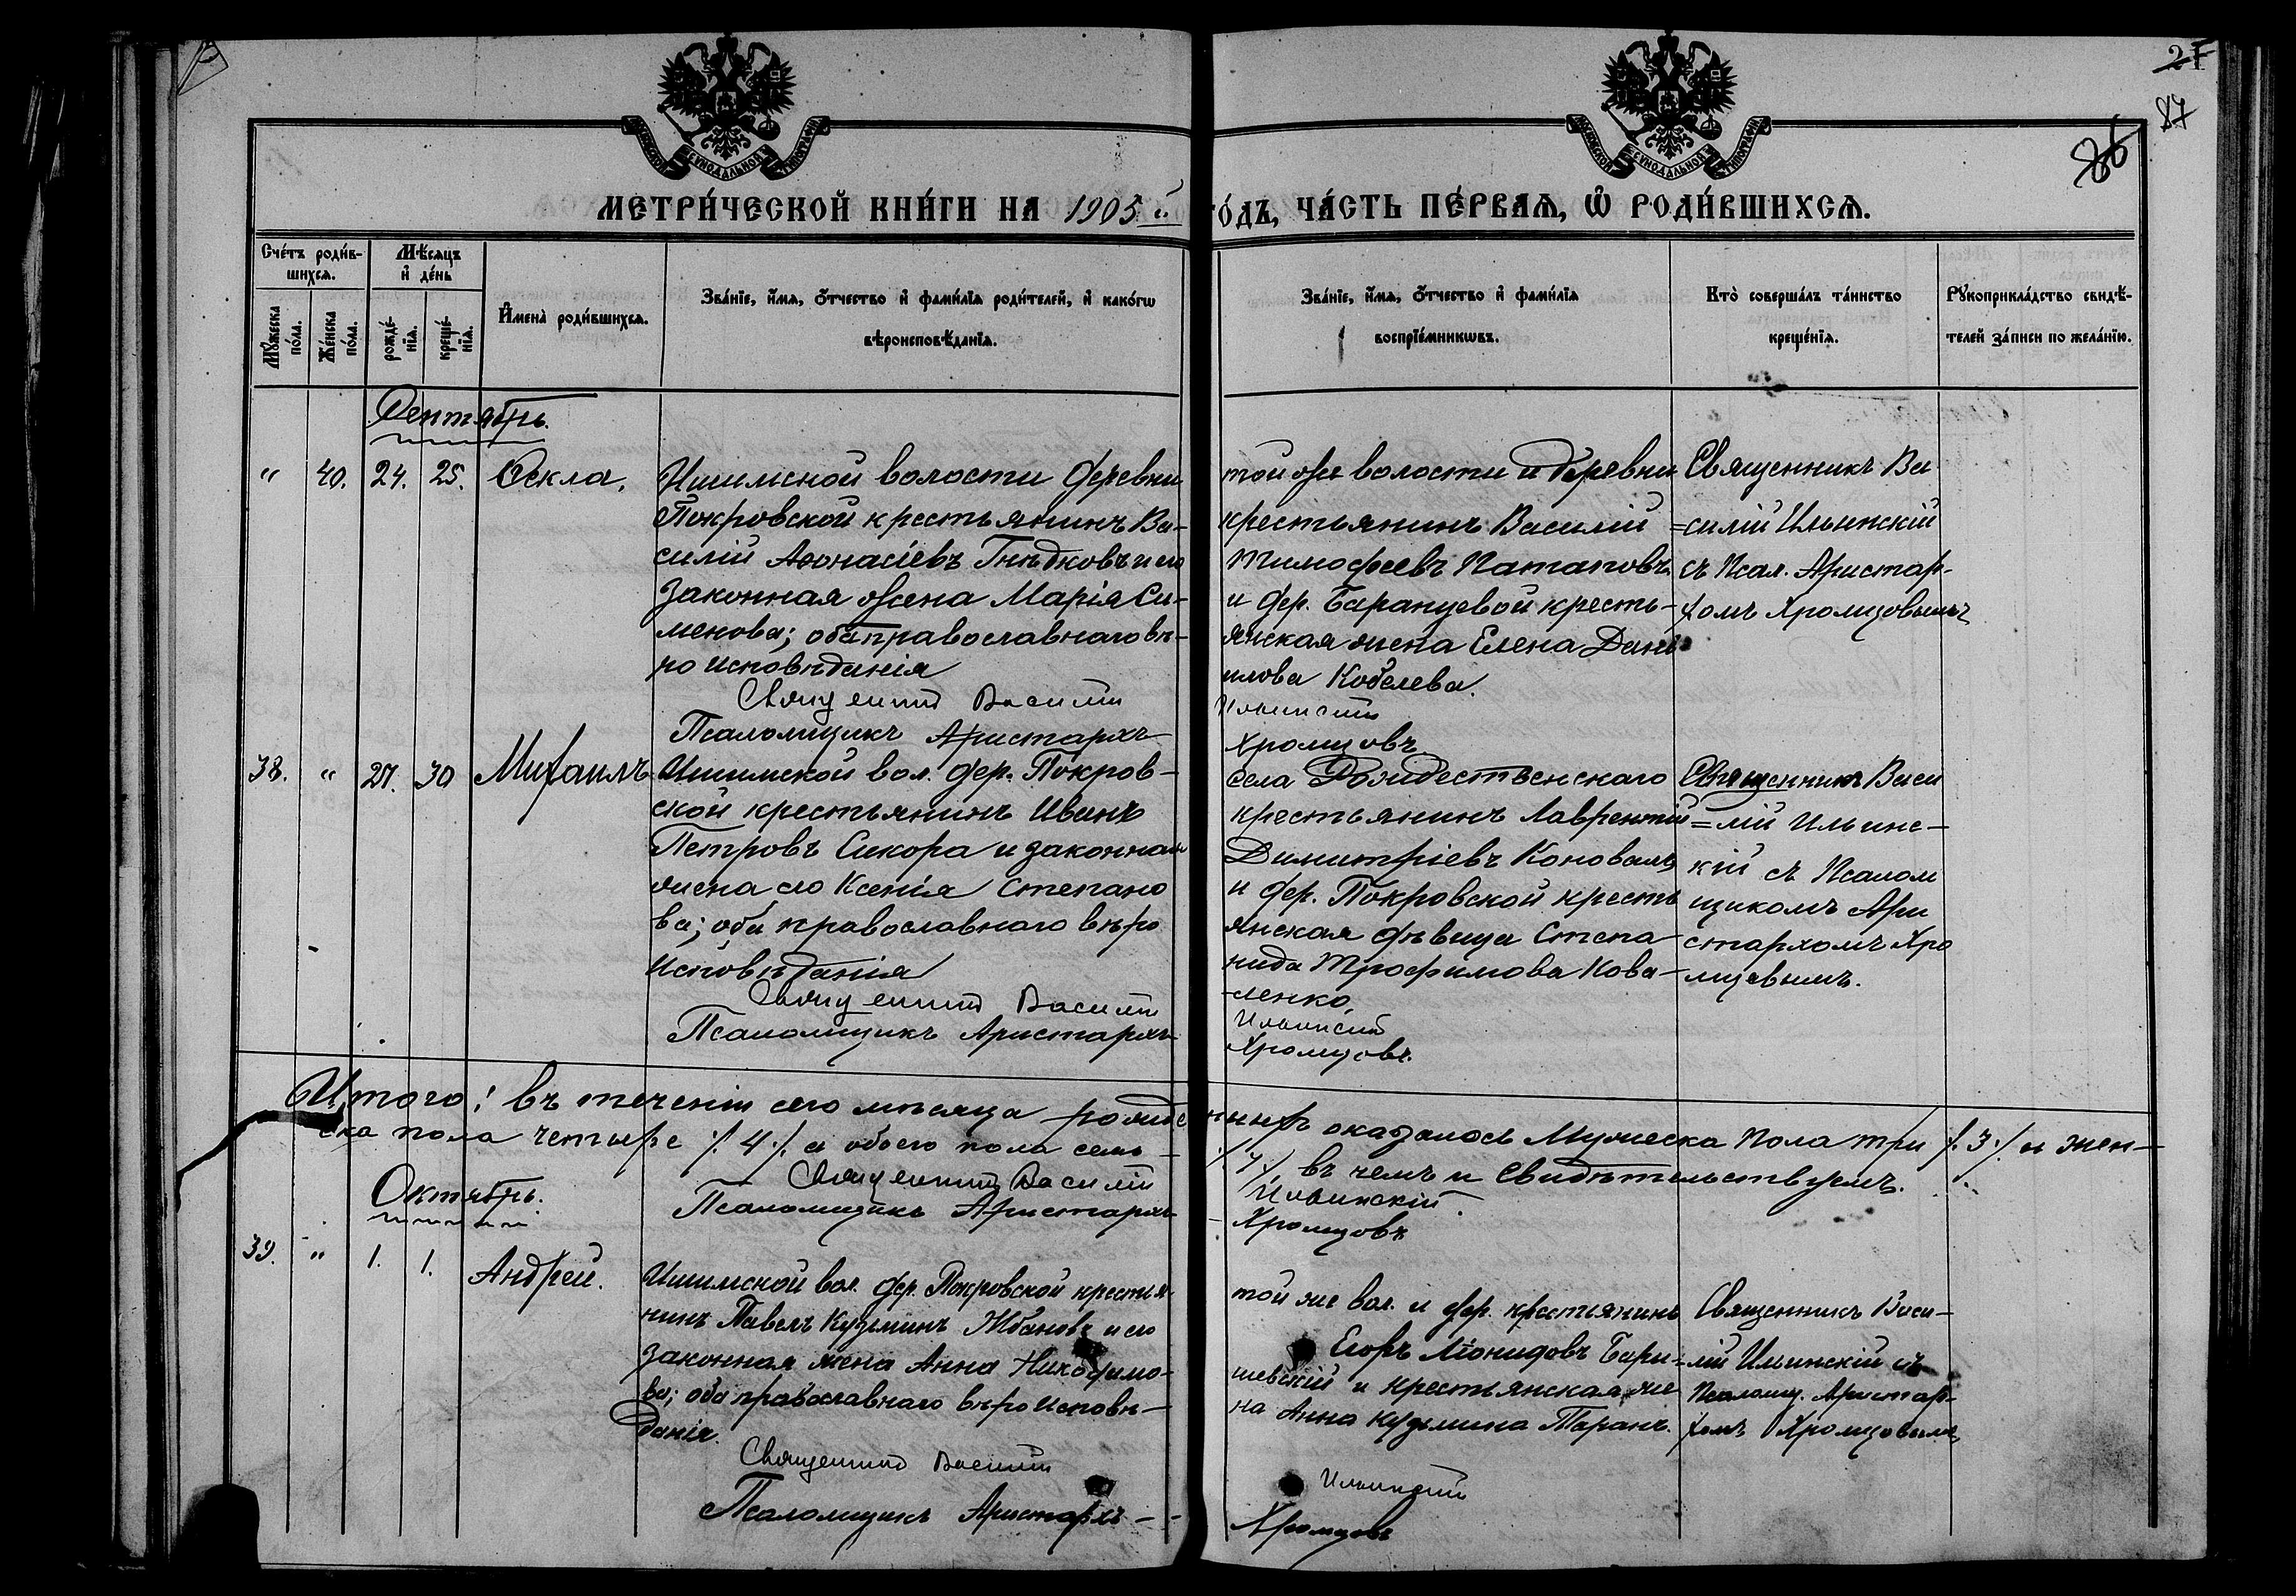 27
87
86
МОСКОВСКОЙ СѴНОДАЛЬНОЙ ТИПОГРАФІИ
МОСКОВСКОЙ СѴНОДАЛЬНОЙ ТИПОГРАФІИ
МЕТРИ́ЧЕСКОЙ КНИ́ГИ НА 1905 й
ГО́ДЪ, ЧА́СТЬ ПЕ́РВАѦ, Ѡ҆ РОДИ́ВШИХСѦ.
Сче́тъ роди́в-
шихсѧ.
Мѣ́сѧцъ
и҆ де́нь
Мꙋ́жеска
по́ла.
Же́нска
по́ла.
рожде́-
нїѧ.
креще́-
нїѧ.
И҆мена̀ роди́вшихсѧ.
Зва́нїе, и҆́мѧ, ѻ҆́тчество и҆ фами́лїѧ роди́телей, и҆ како́гѡ
вѣроисповѣ́данїѧ.
Зва́нїе, и҆́мѧ, ѻ҆́тчество и҆ фами́лїѧ
воспрїе́мникѡвъ.
Кто̀ соверша́лъ та́инство
креще́нїѧ.
Рꙋкоприкла́дство свидѣ́-
телей за́писи по жела́нїю.
Сентябрь.
" 40. 24. 25. Ѳекла.
Ишимской волости деревни
Покровской крестьянинъ Ва-
силій Аѳонасіевъ Гнѣдковъ и его
законная жена Марія Си-
менова; оба православнаго вѣ-
роисповѣданія
Священникъ Василій
Псаломщикъ Аристархъ
той же волости и деревни
крестьянинъ Василій
Тимофеевъ Патаповъ
и дер. Баранцевой кресть-
янская жена Елена Дані
илова Кобелева.
Ильинскій
Хромцовъ
Священникъ Ва
=силій Ильинскій
съ Псал. Аристар-
хомъ Хромцовымъ
38. " 27. 30 Михаилъ
Ишимской вол. дер. Покров-
ской крестьянинъ Иванъ
Петровъ Сикора и законная
жена его Ксенія Степано
ва; оба православнаго вѣро
исповѣданія
Священникъ Василій
Псаломщикъ Аристархъ
села Рождественскаго
крестьянинъ Лаврентій
Димитріевъ Коновалъ
и дер. Покровской кресть
янская дѣвица Степа-
нида Трофимова Кова-
ленко
Ильинскій
Хромцовъ.
Священникъ Васи
=лій Ильинс-
кій съ Псалом
щикомъ Ари
стархомъ Хро
мцевымъ.
Итого: въ теченіи сего мѣсяца рожде нныхъ оказалось Мужеска пола три ./.3./. и жен-
ска пола четыре ./.4./. а обоего пола семь ./.7./. въ чемъ и Свидѣтельствуемъ.
Священникъ Василій Ильинскій
Псаломщикъ Аристархъ Хромцовъ
Октябрь.
39. " 1. 1. Андрей.
Ишимской вол. дер. Покровской крестья-
нинъ Павелъ Кузьминъ Жбановъ и его
законная жена Анна Никодимо-
ва; оба православнаго вѣроисповѣ-
данія.
Священникъ Василій
Псаломщикъ Аристархъ
той же вол. и дер. крестьянинъ
Егоръ Ліонидовъ Бари-
шевскій и крестьянская же
на Анна Кузьмина Таранъ.
Ильинскій
Хромцовъ
Священникъ Васи-
лій Ильинскій съ
Псаломщ. Аристар-
хомъ Хромцовымъ